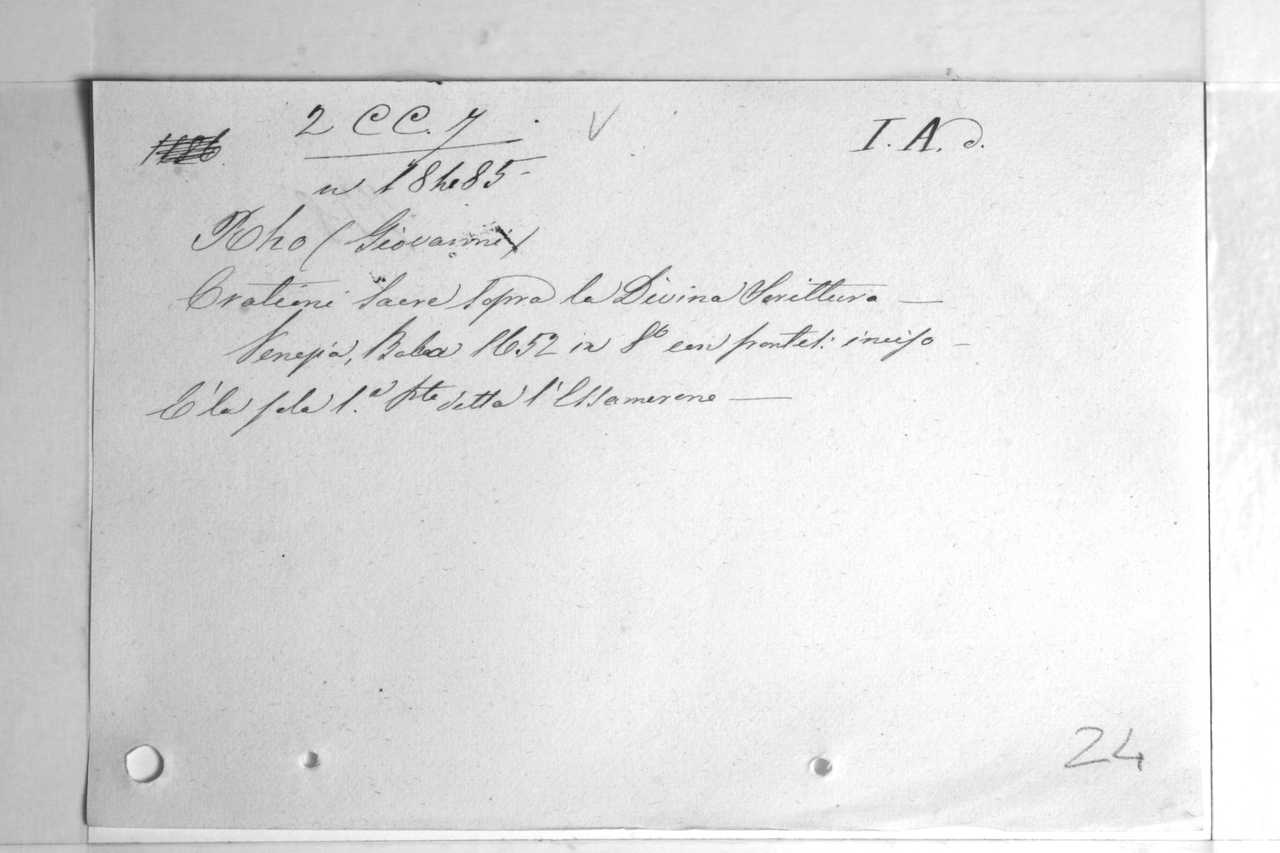 2 CC. 7 V I. A. d.
n 18
Rho (Giovanni)
Orationi Sacre sopra la Divina Scrittura —
Venezia, Baba 1652 in 8º con frontesp: inciso —
È la sola 1.ª pte detta l'Essamerone —
24